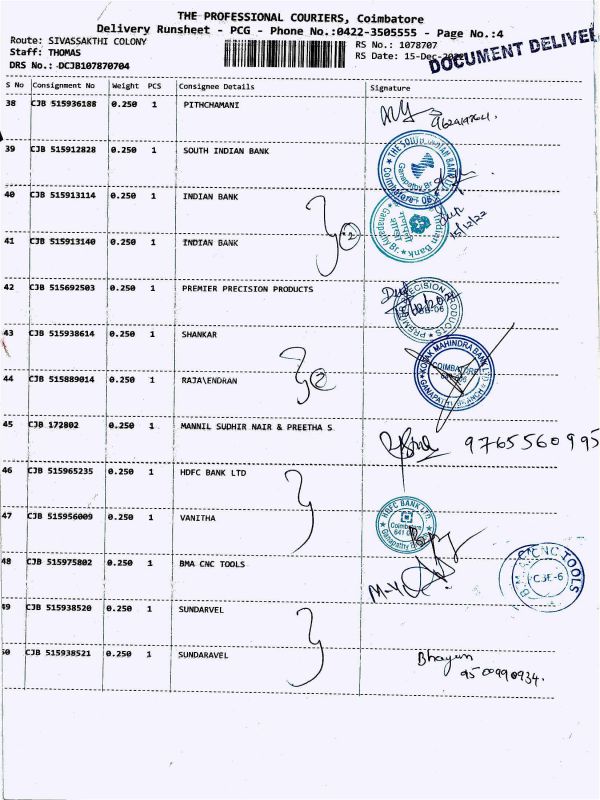 THE PROFESSIONAL COURIERS, Coimbatore
Delivery Runsheet - PCG - Phone No.:0422-3505555 - Page No.:4
Route: SIVASSAKTHI COLONY
RS No.: 1078707
Staff: THOMAS
RS Date: 15-Dec-
DOCUMENT DELIVE
DRS No.: DCJB107870704
S No Consignment No Weight PCS Consignee Details Signature
38 CJB 515936188 0.250 1 PITHCHAMANI
39 CJB 515912828 0.250 1 SOUTH INDIAN BANK
THE SOUTH INDIAN BANK LTD
Coimbatore - 06
40 CJB 515913114 0.250 1 INDIAN BANK
Indian Bank
Ganapathy Br.
15/12/22
41 CJB 515913140 0.250 1 INDIAN BANK
2
42 CJB 515692503 0.250 1 PREMIER PRECISION PRODUCTS
PREMIER PRECISION PRODUCTS
43 CJB 515938614 0.250 1 SHANKAR
KOTAK MAHINDRA BANK LTD
COIMBATORE
GANAPATHY BRANCH
44 CJB 515889014 1 0.250 RAJA\ENDRAN
2
45 CJB 172802 0.250 1 MANNIL SUDHIR NAIR & PREETHA S
9765560995
46 CJB 515965235 0.250 1 HDFC BANK LTD
HDFC BANK LTD.
Coimbatore
Ganapathy
47 CJB 515956009 0.250 1 VANITHA
48 CJB 515975802 0.250 1 BMA CNC TOOLS
CNC TOOLS
CBE-6
49 CJB 515938520 0.250 1 SUNDARVEL
50 CJB 515938521 0.250 1 SUNDARAVEL
9500990934.